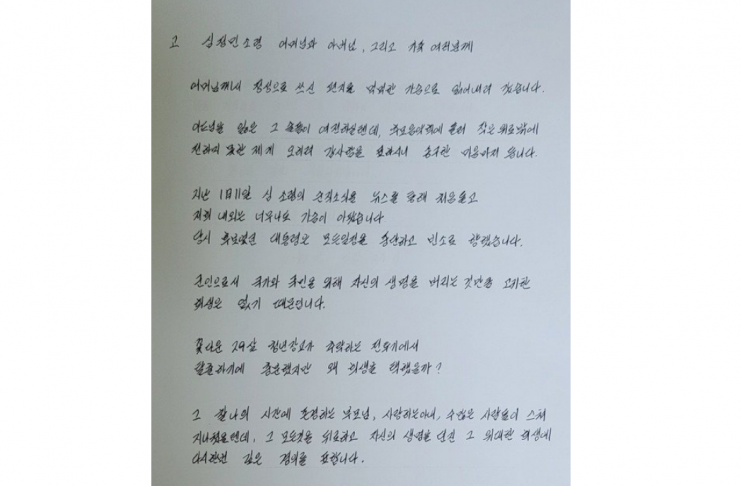 고 심정민 소령 어머님과 아버님, 그리고 가족 여러분께
어머님께서 정성으로 쓰신 편지를 먹먹한 가슴으로 읽어내려 갔습니다.
아드님을 잃은 그 슬픔이 여전하실텐데, 추모음악회에 들러 작은 위로밖에
전하지 못한 제게 오히려 감사함을 표하시니 송구한 마음마저 듭니다.
지난 1월 11일 심 소령의 순직소식을 뉴스를 통해 처음 듣고
저희 내외는 너무나도 가슴이 아팠습니다
당시 후보였던 대통령은 모든일정을 중단하고 빈소로 향했습니다.
군인으로서 국가와 국민을 위해 자신의 생명을 버리는 것만큼 고귀한
희생은 없기 때문입니다.
꽃다운 29살 청년장교가 추락하는 전투기에서
탈출하기에 충분했지만 왜 희생을 택했을까?
그 찰나의 시간에 존경하는 부모님, 사랑하는아내, 수많은 사람들이 스쳐
지나갔을텐데, 그 모든것을 뒤로하고 자신의 생명을 던진 그 위대한 희생에
다시한번 깊은 경의를 표합니다.